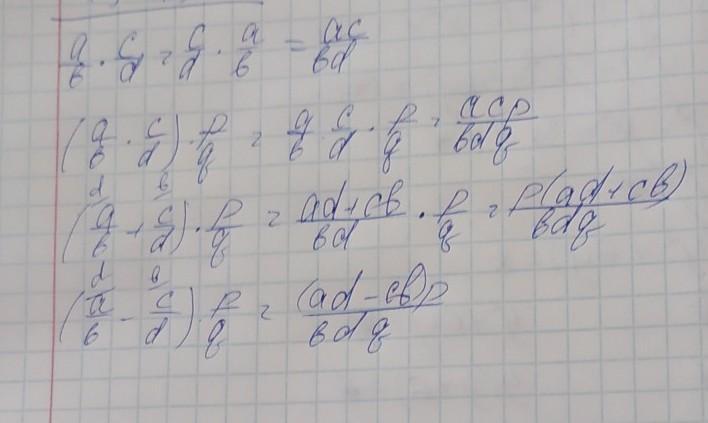 a/b · c/d = c/d · a/b = ac/bd
(a/b · c/d) · p/q = a/b · c/d · p/q = acp/bdq
d b
(a/b + c/d) · p/q = ad+cb/bd · p/q = p(ad+cb)/bdq
d b
(a/b - c/d) p/q = (ad-cb)p/bdq